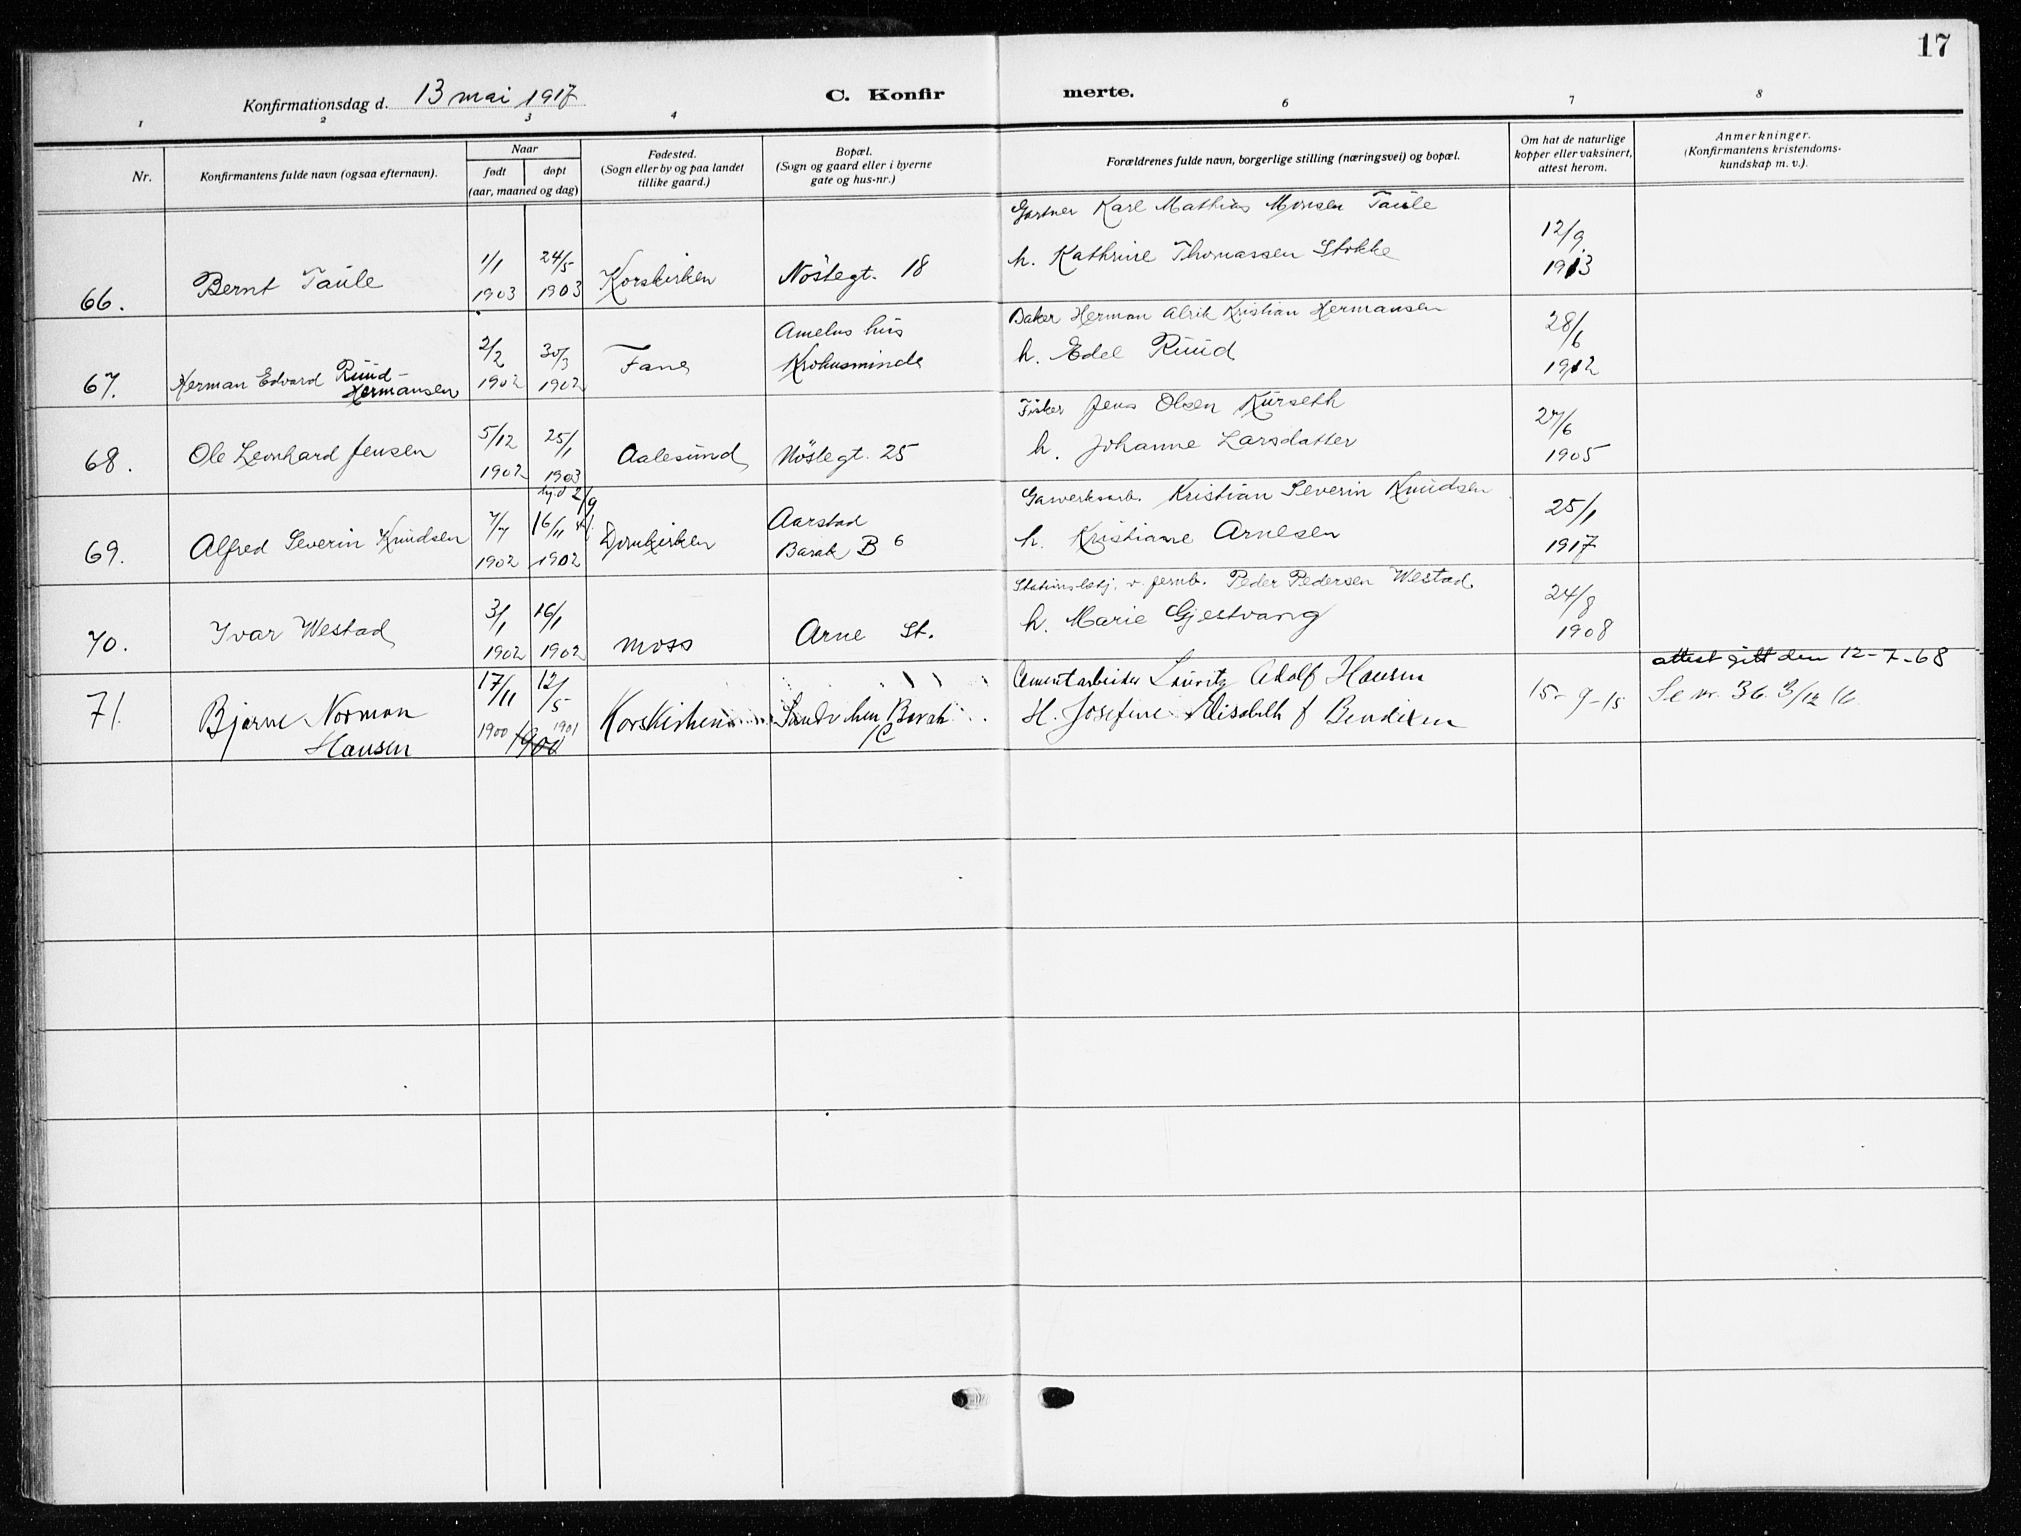 17
Konfirmationsdag d. 13 mai 1917
C. Konfirmerte.
1 2 3 4 6 7 8
Nr.
Konfirmantens fulde navn (ogsaa efternavn).
Naar
født døpt
(aar, maaned og dag)
Fødested.
(Sogn eller by og paa landet
tillike gaard.)
Bopæl.
(Sogn og gaard eller i byerne
gate og hus-nr.)
Forældrenes fulde navn, borgerlige stilling (næringsvei) og bopæl.
Om hat de naturlige
kopper eller vaksinert,
attest herom.
Anmerkninger.
(Konfirmantens kristendoms-
kundskap m. v.).
66.
Bernt Taule
1/1
1903
24/5
1903
Korskirken
Nöstegt. 18
Gartner Karl Mathias Monsen Taule
h. Kathrine Thomassen Stokke
12/9
1913
67.
Herman Edvard Ruud-
Hermansen
2/2
1902
30/3
1902
Fane
Amelns hus
Krohnsminde
Baker Herman Alrik Kristian Hermansen
h. Edel Ruud
28/6
1912
68.
Ole Leonhard Jensen
5/12
1902
25/1
1903
Aalesund
Nöstegt. 25
Fisker Jens Olsen Kurseth
h. Johanne Larsdatter
27/6
1905
69.
Alfred Severin Knudsen
7/7
1902
2/9
16/11
1902
Domkirken
Aarstad
Barak B 6
Gasverksarb. Kristian Severin Knudsen
h. Kristiane Arnesen
25/1
1917
70.
Ivar Westad
3/1
1902
16/1
1902
Moss
Arne St.
Stationsbetj. v. jernb. Peder Pedersen Westad
h. Marie Gjestvang
24/8
1908
71.
Bjarne Norman
Hansen
17/11
1900
12/5
1901
1900
Korskirken
Sandviken Barak
C
Cementarbeider Lauritz Adolf Hansen
H. Josefine Elisabeth f Bendixen
15-9-15
attest gitt den 12-7-68
Se nr. 36. 3/12 16.